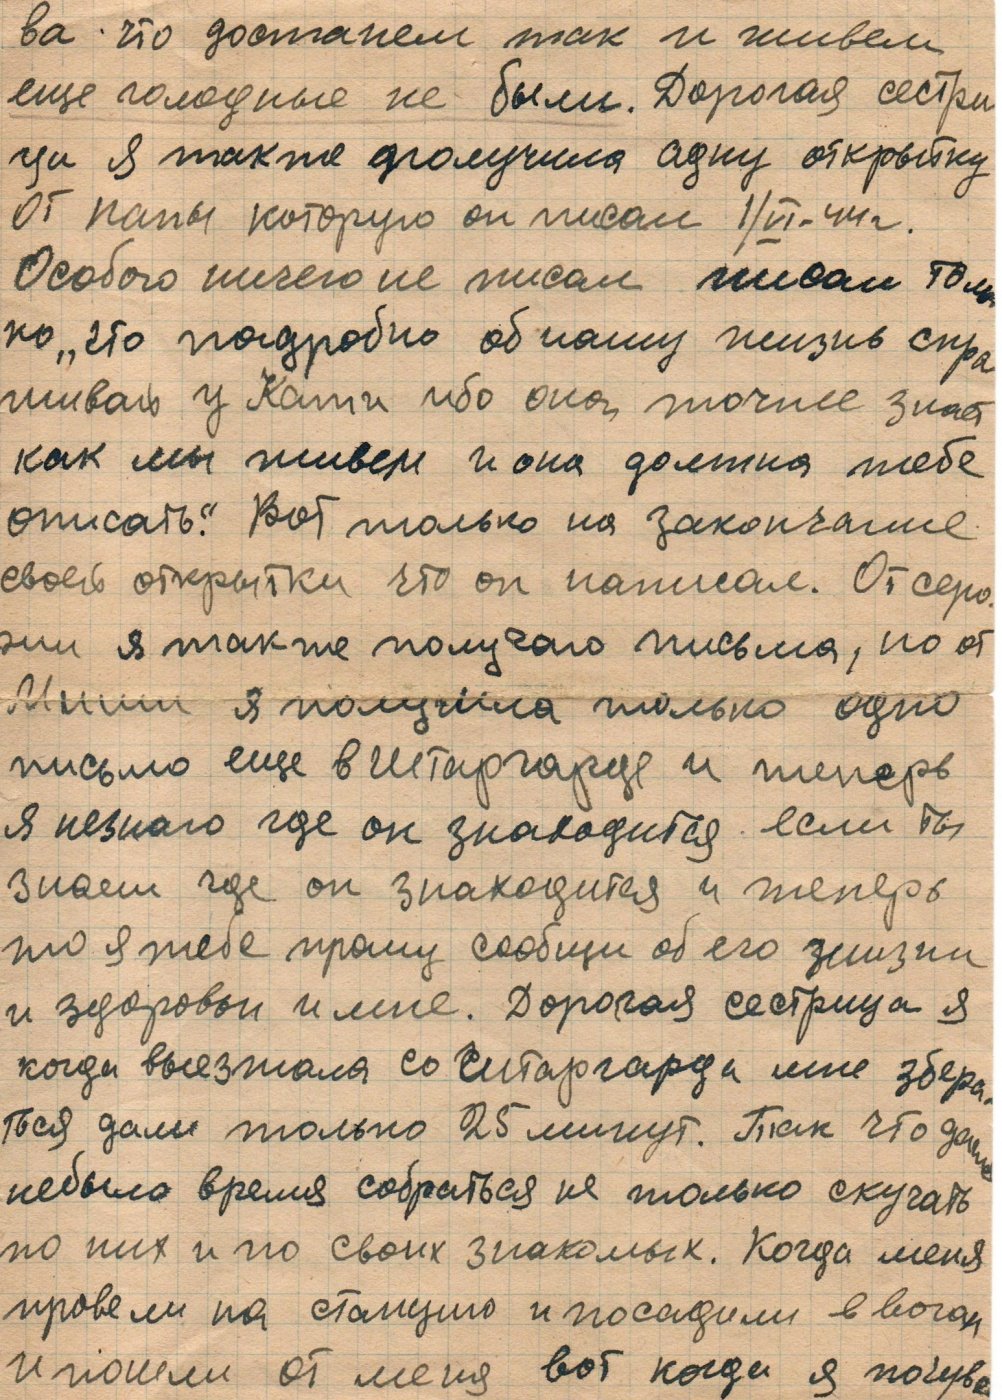 ва что достанем так и живем
еще голодные не были. Дорогая сестри
ца я также получила адну открытку
От папы которую он писал 1/VI-44г.
Особого ничего не писал писал толь
ко „что подробно об нашу жизнь спра
шивай у Кати ибо она точнее знает
как мы живем и она должна тебе
описать." Вот только на закончание
своей открытки что он написал. От серо
жи я также получаю письма, но от
Миши я получила только одно
письмо еще в Штаргарде и теперь
я незнаю где он знаходится если ты
знаеш где он знаходится и теперь
то я тебе прошу сообщи об его жизни
и здоровьи и мне. Дорогая сестрица я
когда выезжала со Штаргарда мне збера-
ться дали только 25 минут. Так что даже
небыло время собраться не только скучать
по них и по своих знакомых. Когда меня
провели на станцию и посадили в вагон
и пошли от меня вот когда я почувс